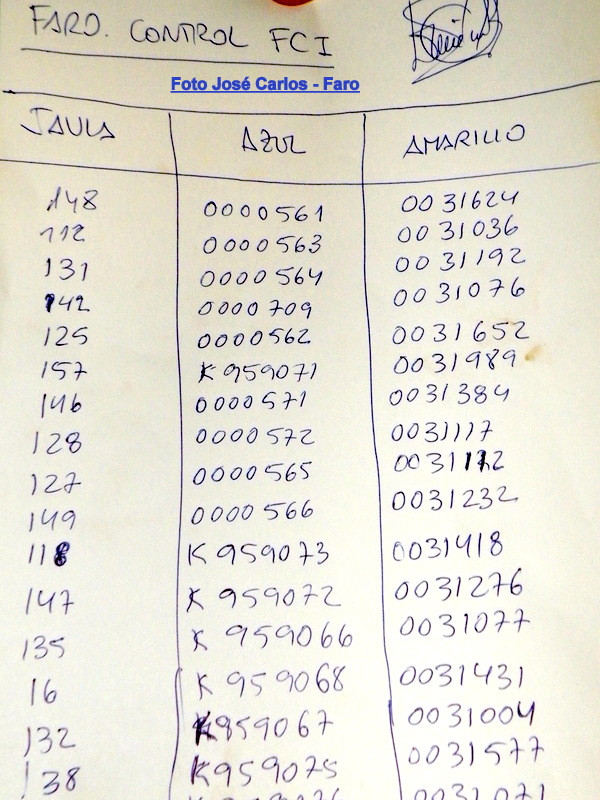 FARO. CONTROL FCI
Foto José Carlos - Faro
JAULA AZUL AMARILLO
148 0000561 0031624
112 0000563 0031036
131 0000564 0031192
142 0000709 0031076
125 0000562 0031652
157 K959071 0031989
146 0000571 0031384
128 0000572 0031117
127 0000565 0031172
149 0000566 0031232
118 K959073 0031418
147 K959072 0031276
135 K959066 0031077
16 K959068 0031431
132 K959067 0031004
138 K959075 0031577
0031071